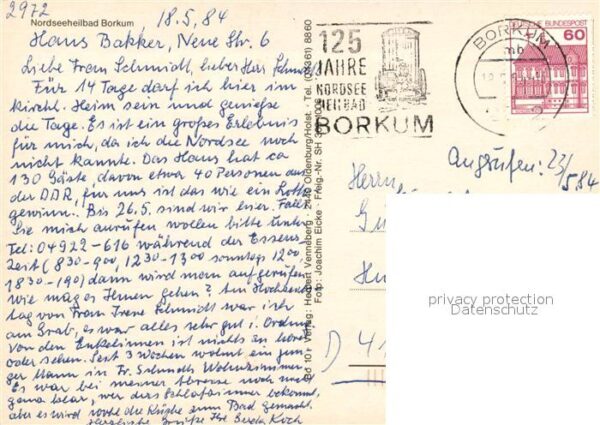 2972
Nordseeheilbad Borkum
18.5.84
Haus Bakker, Neue Str. 6
Liebe Frau Schmidt, lieber Herr Schmidt
Für 14 Tage darf ich hier im
kirchl. Heim sein und genieße
die Tage. Es ist ein großes Erlebnis
für mich, da ich die Nordsee noch
nicht kannte. Das Haus hat ca
130 Gäste, davon etwa 40 Personen aus
der DDR, für uns ist das wie ein Lotto
gewinn. Bis 26.5. sind wir hier. Falls
Sie mich anrufen wollen bitte unter
Tel: 04922-616 während der Essens
Zeit (830-900, 1230-1300 sonntags 1200
1830-190) dann wird man aufgerufen
Wie mag es Ihnen gehen? Am Hochzeits
tag von Frau Irene Schmidt war ich
am Grab, es war alles sehr gut i. Ordnung
Von den Enkelinnen ist nichts zu hören
oder sehen. Seit 3 Wochen wohnt ein jun-
ger Mann in Fr. Schmidts Wohnzimmer
Es war bei meiner Abreise noch nicht
ganz klar, wer das Schlafzimmer bekommt,
aber es wird die Küche zum Bad gemacht.
Herzliche Grüße Ihre Gerda Koch
Bd 101 Verlag: Herbert Venneberg · 2440 Oldenburg/Holst. · Tel. (04361) 8860
Foto: Joachim Eicke · Freig.-Nr. SH
125
JAHRE
NORDSEE
HEILBAD
BORKUM
BORKUM
mb
DEUTSCHE BUNDESPOST
60
Angerufen: 23/
5.84
Herrn
D 41
privacy protection
Datenschutz